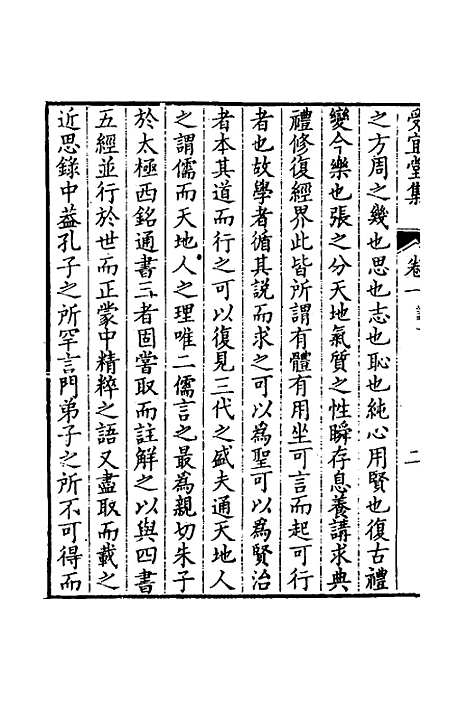 受宜堂集　卷一　二
之方周之幾也思也志也恥也純心用賢也復古禮
變今樂也張之分天地氣質之性瞬存息養講求典
禮修復經界此皆所謂有體有用坐可言而起可行
者也故學者循其說而求之可以為聖可以為賢治
者本其道而行之可以復見三代之盛夫通天地人
之謂儒而天地人之理唯二儒言之最為親切朱子
於太極西銘通書三者固嘗取而註解之以與四書
五經並行於世而正蒙中精粹之語又盡取而載之
近思錄中葢孔子之所罕言門弟子之所不可得而